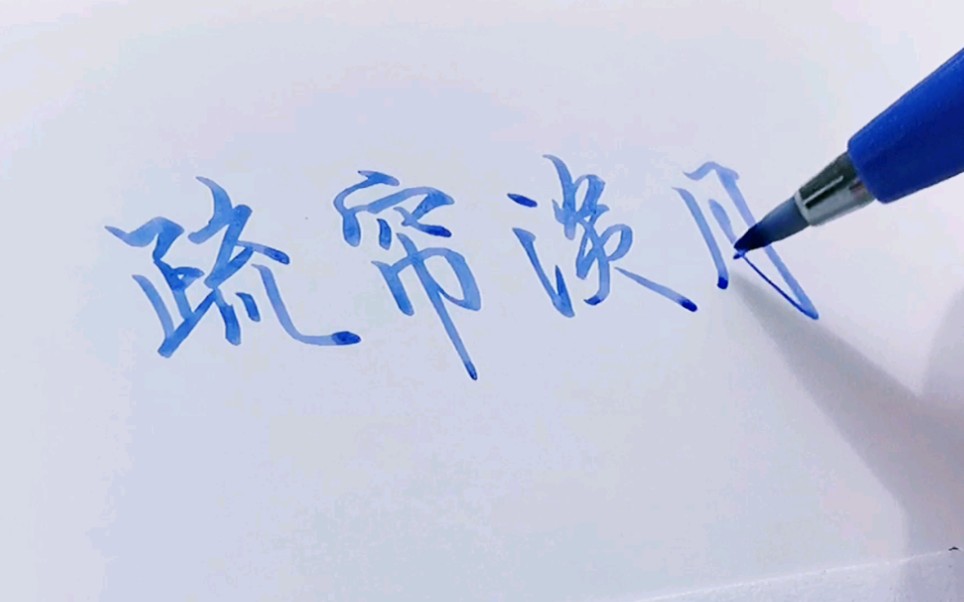 疏帘淡月